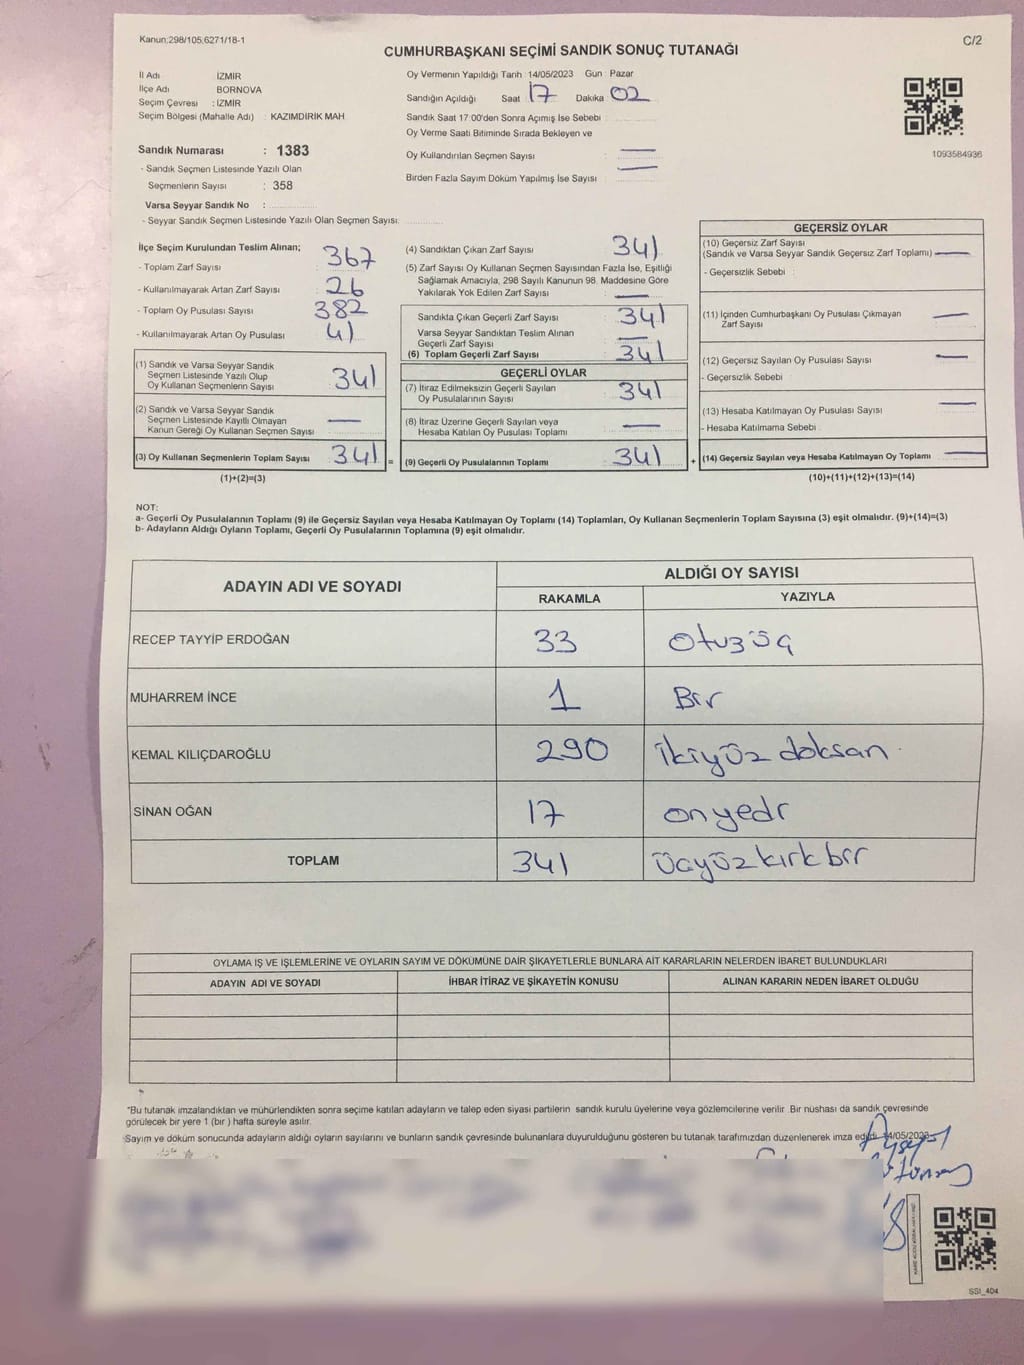 Kanun;298/105,6271/18-1
C/2
CUMHURBAŞKANI SEÇİMİ SANDIK SONUÇ TUTANAĞI
İl Adı İZMİR
İlçe Adı BORNOVA
Seçim Çevresi : İZMİR
Seçim Bölgesi (Mahalle Adı) : KAZIMDİRİK MAH
Oy Vermenin Yapıldığı Tarih 14/05/2023 Gün Pazar
Sandığın Açıldığı Saat 17 Dakika 02
Sandık Saat 17:00'den Sonra Açımış İse Sebebi
Oy Verme Saati Bitiminde Sırada Bekleyen ve
Oy Kullandırılan Seçmen Sayısı : —
Birden Fazla Sayım Döküm Yapılmış İse Sayısı : —
1093584936
Sandık Numarası : 1383
- Sandık Seçmen Listesinde Yazılı Olan
Seçmenlerin Sayısı : 358
Varsa Seyyar Sandık No :
- Seyyar Sandık Seçmen Listesinde Yazılı Olan Seçmen Sayısı:
İlçe Seçim Kurulundan Teslim Alınan;
- Toplam Zarf Sayısı 367
- Kullanılmayarak Artan Zarf Sayısı 26
- Toplam Oy Pusulası Sayısı 382
- Kullanılmayarak Artan Oy Pusulası 41
(1) Sandık ve Varsa Seyyar Sandık
Seçmen Listesinde Yazılı Olup
Oy Kullanan Seçmenlerin Sayısı 341
(2) Sandık ve Varsa Seyyar Sandık
Seçmen Listesinde Kayıtlı Olmayan
Kanun Gereği Oy Kullanan Seçmen Sayısı —
(3) Oy Kullanan Seçmenlerin Toplam Sayısı 341 =
(1)+(2)=(3)
(4) Sandıktan Çıkan Zarf Sayısı 341
(5) Zarf Sayısı Oy Kullanan Seçmen Sayısından Fazla İse, Eşitliği
Sağlamak Amacıyla, 298 Sayılı Kanunun 98. Maddesine Göre
Yakılarak Yok Edilen Zarf Sayısı : —
Sandıkta Çıkan Geçerli Zarf Sayısı : 341
Varsa Seyyar Sandıktan Teslim Alınan
Geçerli Zarf Sayısı : —
(6) Toplam Geçerli Zarf Sayısı : 341
GEÇERLİ OYLAR
(7) İtiraz Edilmeksizin Geçerli Sayılan
Oy Pusulalarının Sayısı : 341
(8) İtiraz Üzerine Geçerli Sayılan veya
Hesaba Katılan Oy Pusulası Toplamı : —
(9) Geçerli Oy Pusulalarının Toplamı : 341 +
GEÇERSİZ OYLAR
(10) Geçersiz Zarf Sayısı
(Sandık ve Varsa Seyyar Sandık Geçersiz Zarf Toplamı) —
- Geçersizlik Sebebi :
(11) İçinden Cumhurbaşkanı Oy Pusulası Çıkmayan
Zarf Sayısı —
(12) Geçersiz Sayılan Oy Pusulası Sayısı —
- Geçersizlik Sebebi :
(13) Hesaba Katılmayan Oy Pusulası Sayısı —
- Hesaba Katılmama Sebebi :
(14) Geçersiz Sayılan veya Hesaba Katılmayan Oy Toplamı —
(10)+(11)+(12)+(13)=(14)
NOT:
a- Geçerli Oy Pusulalarının Toplamı (9) ile Geçersiz Sayılan veya Hesaba Katılmayan Oy Toplamı (14) Toplamları, Oy Kullanan Seçmenlerin Toplam Sayısına (3) eşit olmalıdır. (9)+(14)=(3)
b- Adayların Aldığı Oyların Toplamı, Geçerli Oy Pusulalarının Toplamına (9) eşit olmalıdır.
ADAYIN ADI VE SOYADI
ALDIĞI OY SAYISI
RAKAMLA YAZIYLA
RECEP TAYYİP ERDOĞAN 33 otuzüç
MUHARREM İNCE 1 Bir
KEMAL KILIÇDAROĞLU 290 ikiyüz doksan
SİNAN OĞAN 17 onyedi
TOPLAM 341 üçyüzkırk bir
OYLAMA İŞ VE İŞLEMLERİNE VE OYLARIN SAYIM VE DÖKÜMÜNE DAİR ŞİKAYETLERLE BUNLARA AİT KARARLARIN NELERDEN İBARET BULUNDUKLARI
ADAYIN ADI VE SOYADI İHBAR İTİRAZ VE ŞİKAYETİN KONUSU ALINAN KARARIN NEDEN İBARET OLDUĞU
*Bu tutanak imzalandıktan ve mühürlendikten sonra seçime katılan adayların ve talep eden siyasi partilerin sandık kurulu üyelerine veya gözlemcilerine verilir. Bir nüshası da sandık çevresinde
görülecek bir yere 1 (bir ) hafta süreyle asılır.
Sayım ve döküm sonucunda adayların aldığı oyların sayılarını ve bunların sandık çevresinde bulunanlara duyurulduğunu gösteren bu tutanak tarafımızdan düzenlenerek imza edildi. 14/05/2023
SSI_404